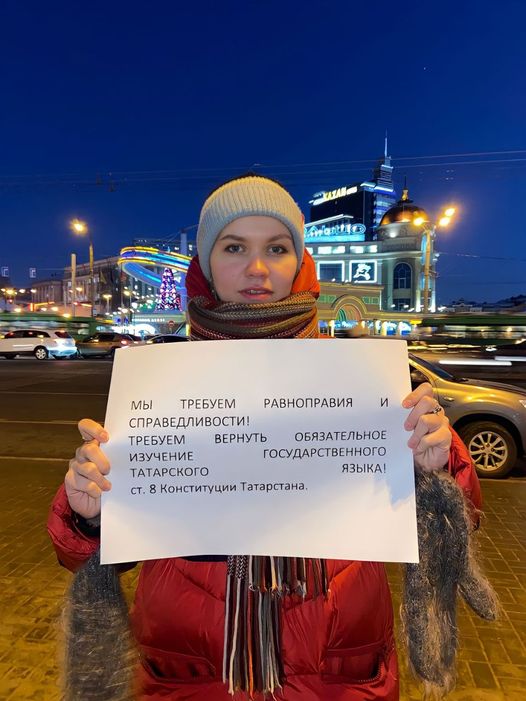 KAZAN
МЫ ТРЕБУЕМ РАВНОПРАВИЯ И
СПРАВЕДЛИВОСТИ!
ТРЕБУЕМ ВЕРНУТЬ ОБЯЗАТЕЛЬНОЕ
ИЗУЧЕНИЕ ГОСУДАРСТВЕННОГО
ТАТАРСКОГО ЯЗЫКА!
ст. 8 Конституции Татарстана.